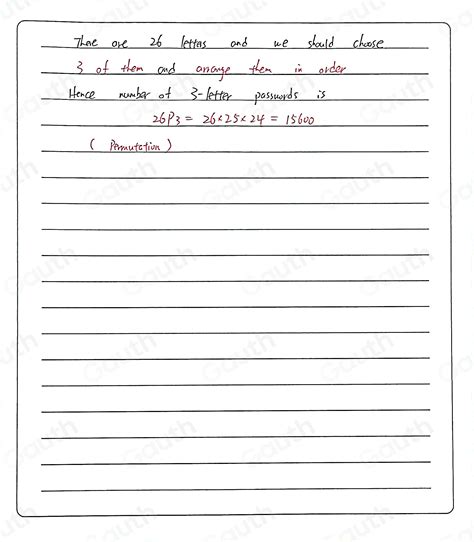 There are 26 letters and we should choose
3 of them and arrange them in order
Hence number of 3-letter passwords is
26P3 = 26×25×24 = 15600
( Permutation )
Gauth